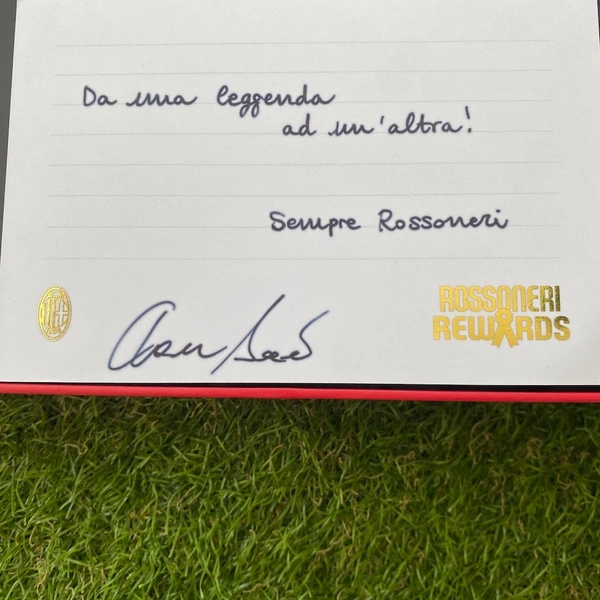 Da una leggenda
ad un'altra!
Sempre Rossoneri
ROSSONERI
REWARDS